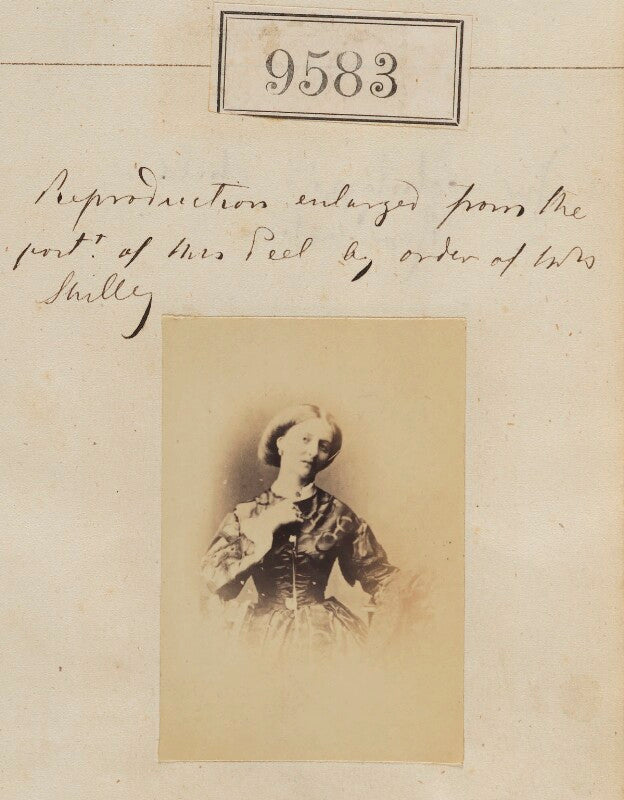 9583
Reproduction enlarged from the
portt. of Mrs Peel by order of Mrs
Shilley